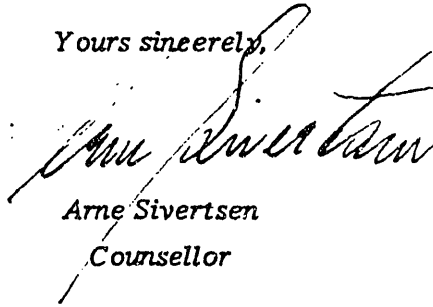 Yours sincerely,
Arne Sivertsen
Arne Sivertsen
Counsellor